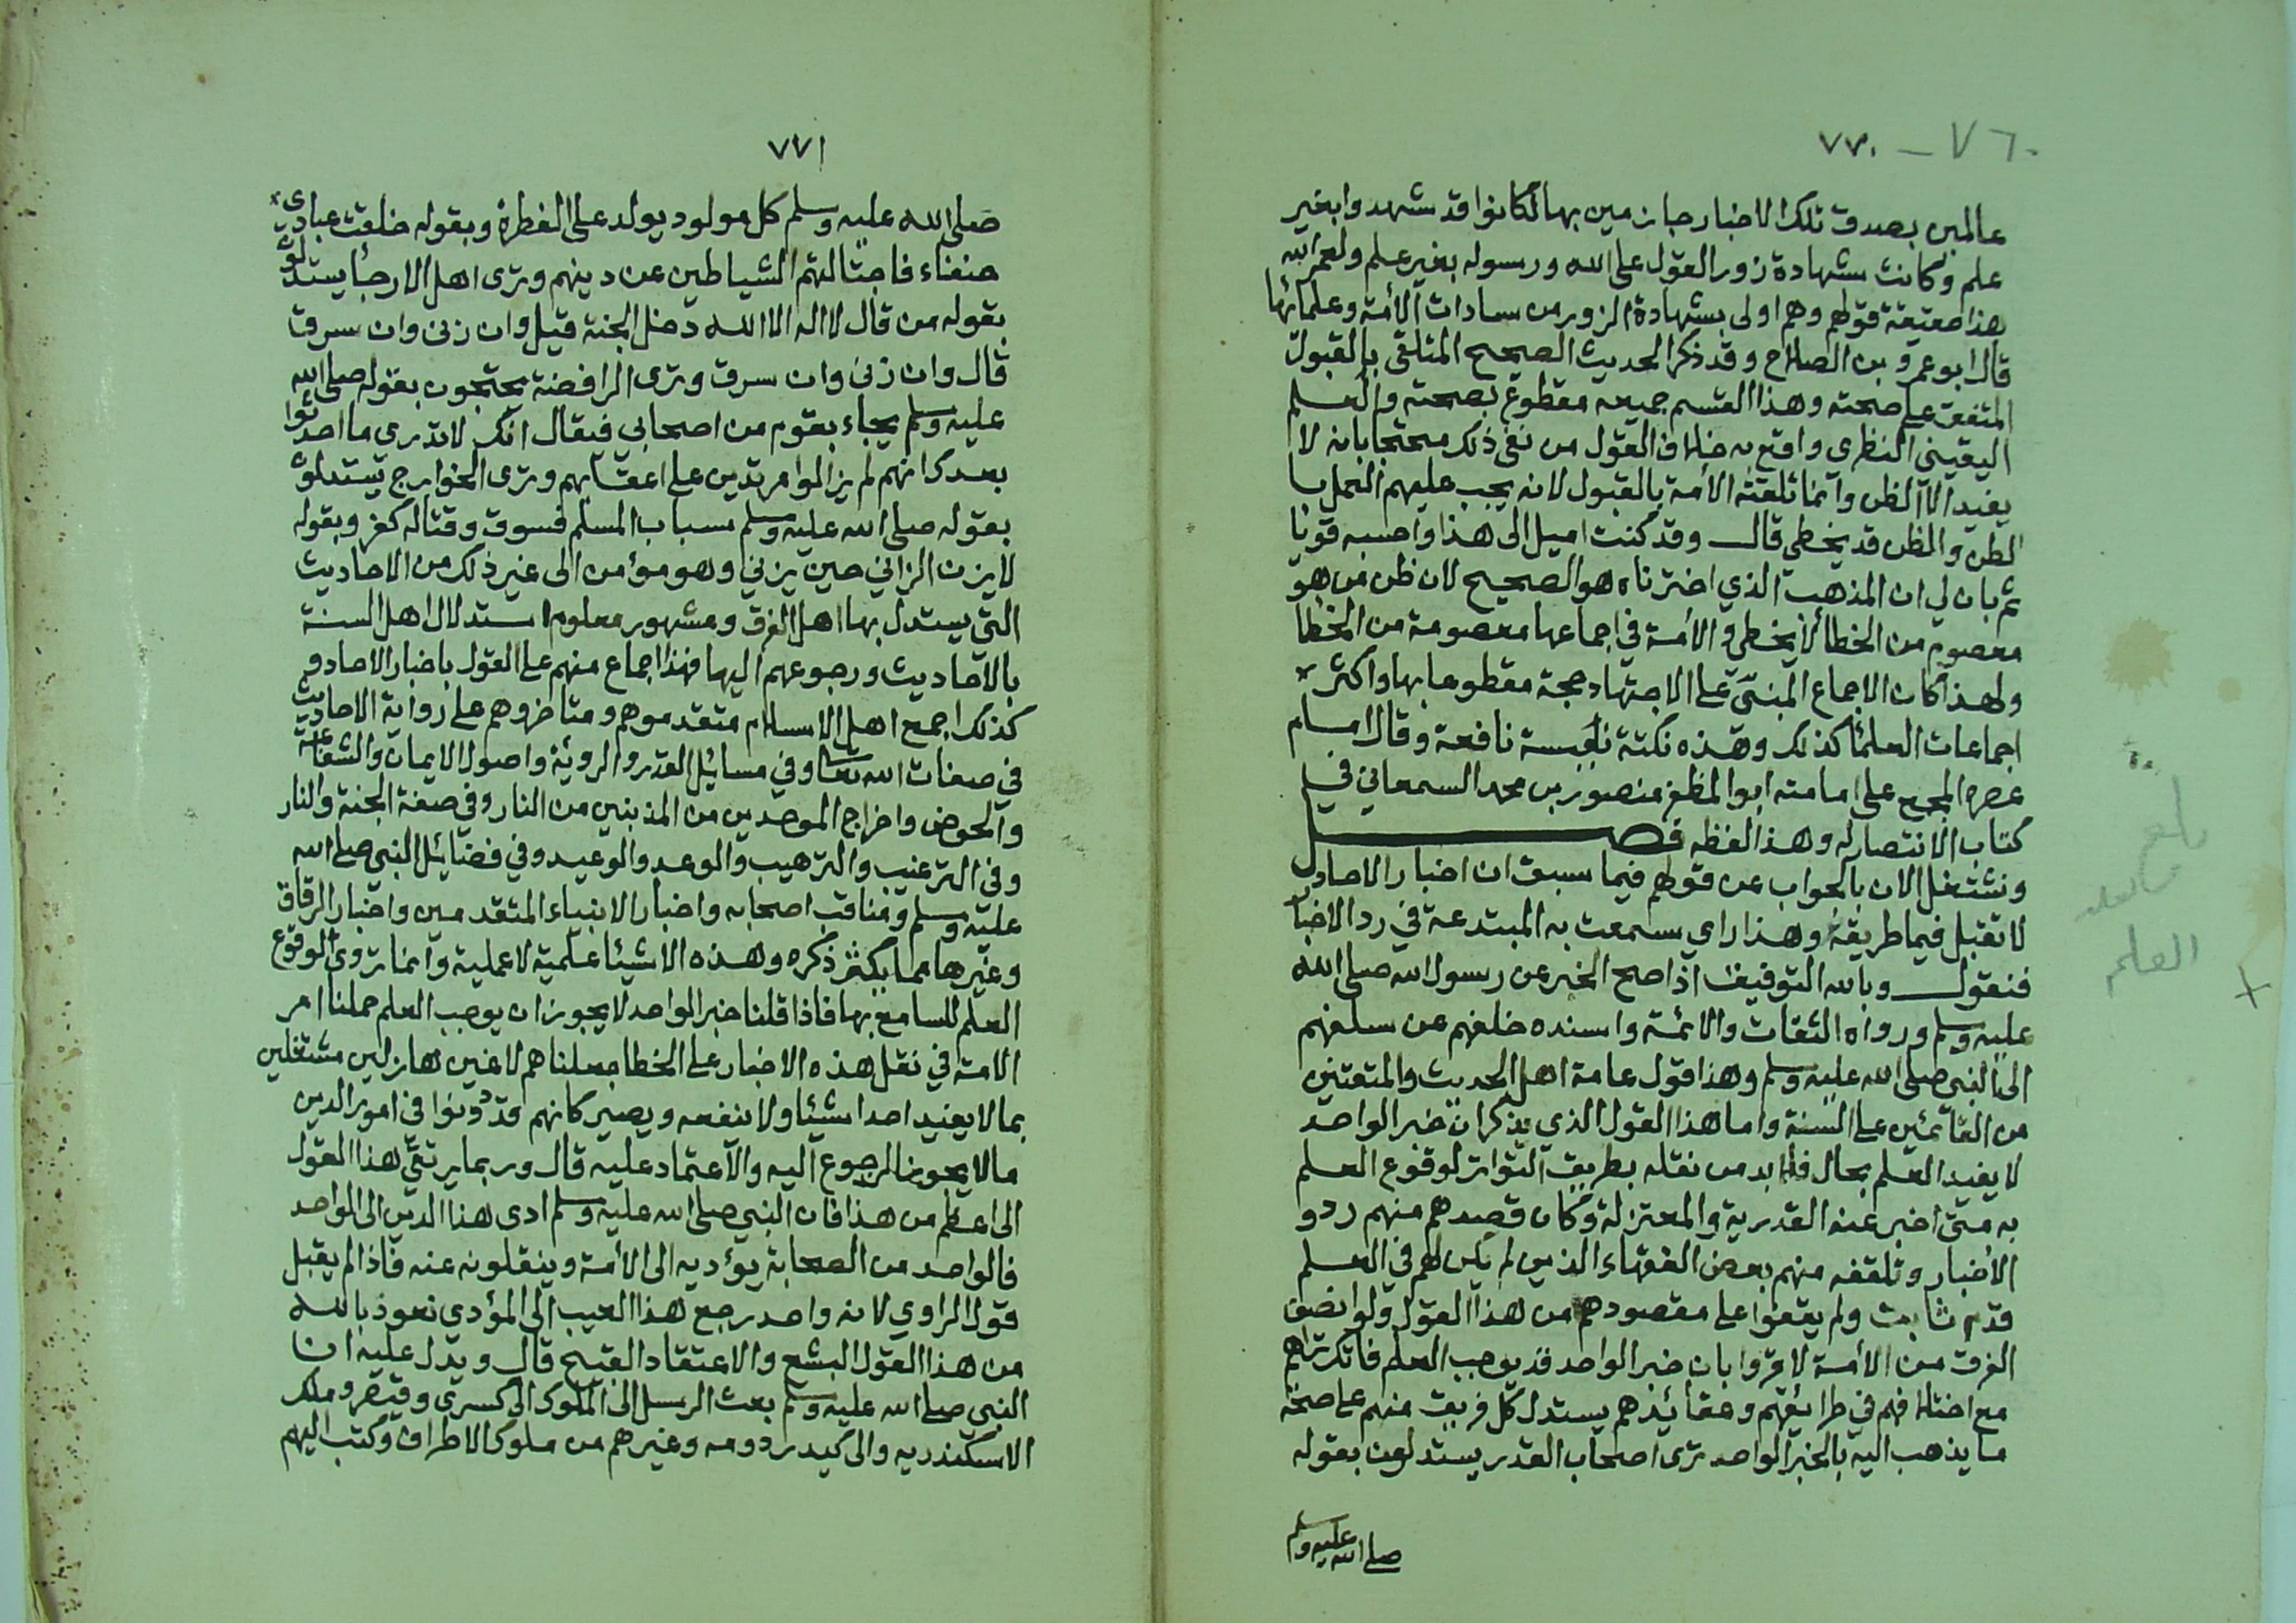 ٧٧٠ — ٧٦٠
عالمين بصدق تلك الاخبار جازمين بها لكانوا قد شهدوا بغير
علم وكانت شهادة زور القول على الله ورسوله بغير علم ولعمر الله
هذا حقيقة قولهم وهم اولى بشهادة الزور من سادات الأمة وعلمائها
قال ابو عمرو بن الصلاح وقد ذكر الحديث الصحيح المتلقى بالقبول
المتفق على صحته وهذا القسم جميعه مقطوع بصحته والعلم
اليقيني النظري واقع به خلاف القول من نفى ذلك محتجا بانه لا
يفيد الا الظن وانما تلقته الأمة بالقبول لانه يجب عليهم العمل با
لظن والظن قد يخطي قال وقد كنت اميل الى هذا واحسبه قويا
ثم بان لي ان المذهب الذي اخترناه هو الصحيح لان ظن من هو
معصوم من الخطأ لا يخطي والأمة في اجماعها معصومة من الخطا
ولهذا كان الاجماع المبنيّ على الاجتهاد حجة مقطوعا بها واكثر
اجماعات العلمأ كذلك وهذه نكتة نفيسة نافعة وقال امام
عصره المجمع على امامته ابو المظفر منصور بن محمد السمعاني في
كتاب الانتصار له وهذا لفظه فصل
ونشتغل الان بالجواب عن قولهم فيما سبق ان اخبار الاحاد
لا تقبل فيما طريقه وهذا راي سمعت به المبتدعة في رد الاخبا
فنقول وبالله التوفيق اذا صح الخبر عن رسول الله صلى الله
عليه وسلم ورواه الثقات والائمة واسنده خلفهم عن سلفهم
الى النبي صلى الله عليه وسلم وهذا قول عامة اهل الحديث والمتقنين
من القائمين على السنة واما هذا القول الذي يذكر ان خبر الواحد
لا يفيد العلم بحال فلا بد من نقله بطريق التواتر لوقوع العلم
به متى اخبر عنه القدرية والمعتزلة وكان قصدهم منهم ردو
الأخبار وتلقفه منهم بعض الفقهاء الذين لم يكن لهم في العلم
قدم ثابت ولم يقفوا على مقصودهم من هذا القول ولو انصف
الفرق من الأمة لاقروا بان خبر الواحد قد يوجب العلم فانك تراهم
مع اختلافهم في طرائقهم وعقائدهم يستدل كل فريق منهم على صحة
ما يذهب اليه بالخبر الواحد ترى اصحاب القدر يستدلون بقوله
صلى الله عليه وسلم
العلم
٧٧١
صلى الله عليه وسلم كل مولود يولد على الفطرة وبقوله خلقت عبادى
حنفاء فاجتالتهم الشياطين عن دينهم وترى اهل الارجأ يستدلو
بقوله من قال لا اله الا الله دخل الجنة قيل وان زنى وان سرق
قال وان زنى وان سرق وترى الرافضة يحتجون بقوله صلى الله
عليه وسلم يجاء بقوم من اصحابي فيقال انك لا تدري ما احدثوا
بعدك انهم لم يزالوا مرتدين على اعقابهم وترى الخوارج يستدلو
بقوله صلى الله عليه وسلم سباب المسلم فسوق وقتاله كفر وبقوله
لا يزن الزاني حين يزني وهو مؤمن الى غير ذلك من الاحاديث
التي يستدل بها اهل الفرق ومشهور معلوم استدلال اهل السنة
بالاحاديث ورجوعهم اليها فهذا اجماع منهم على القول باخبار الاحاد و
كذلك اجمع اهل الاسلام متقدموهم ومتاخروهم على رواية الاحاديث
في صفات الله تعالى وفي مسائل القدر والروية واصول الايمان والشفاعة
والحوض واخراج الموحدين من المذنبين من النار وفي صفة الجنة والنار
وفي الترغيب والترهيب والوعد والوعيد وفي فضائل النبي صلى الله
عليه وسلم ومناقب اصحابه واخبار الانبياء المتقدمين واخبار الرقاق
وغيرها مما يكثر ذكره وهذه الاشيأ علمية لا عملية وانما تروى لوقوع
العلم للسامع بها فاذا قلنا خبر الواحد لا يجوز ان يوجب العلم حملنا امر
الامة في نقل هذه الاخبار على الخطا جعلناهم لاغين هازلين مشتغلين
بما لا يفيد احدا شيئا ولا ينفعه ويصير كانهم قد دونوا في امور الدين
مالا يجوز الرجوع اليه والاعتماد عليه قال وربما يرتقي هذا القول
الى اعظم من هذا فان النبي صلى الله عليه وسلم ادى هذا الدين الى الواحد
فالواحد من الصحابة يؤديه الى الأمة وينقلونه عنه فاذا لم يقبل
قول الراوي لانه واحد رجع هذا العيب الى المؤدي نعوذ بالله
من هذا القول البشع والاعتقاد القبيح قال ويدل عليه ان
النبي صلى الله عليه وسلم بعث الرسل الى الملوك الى كسرى وقيصر وملك
الاسكندريه والى اكيدر دومه وغيرهم من ملوك الاطراف وكتب اليهم